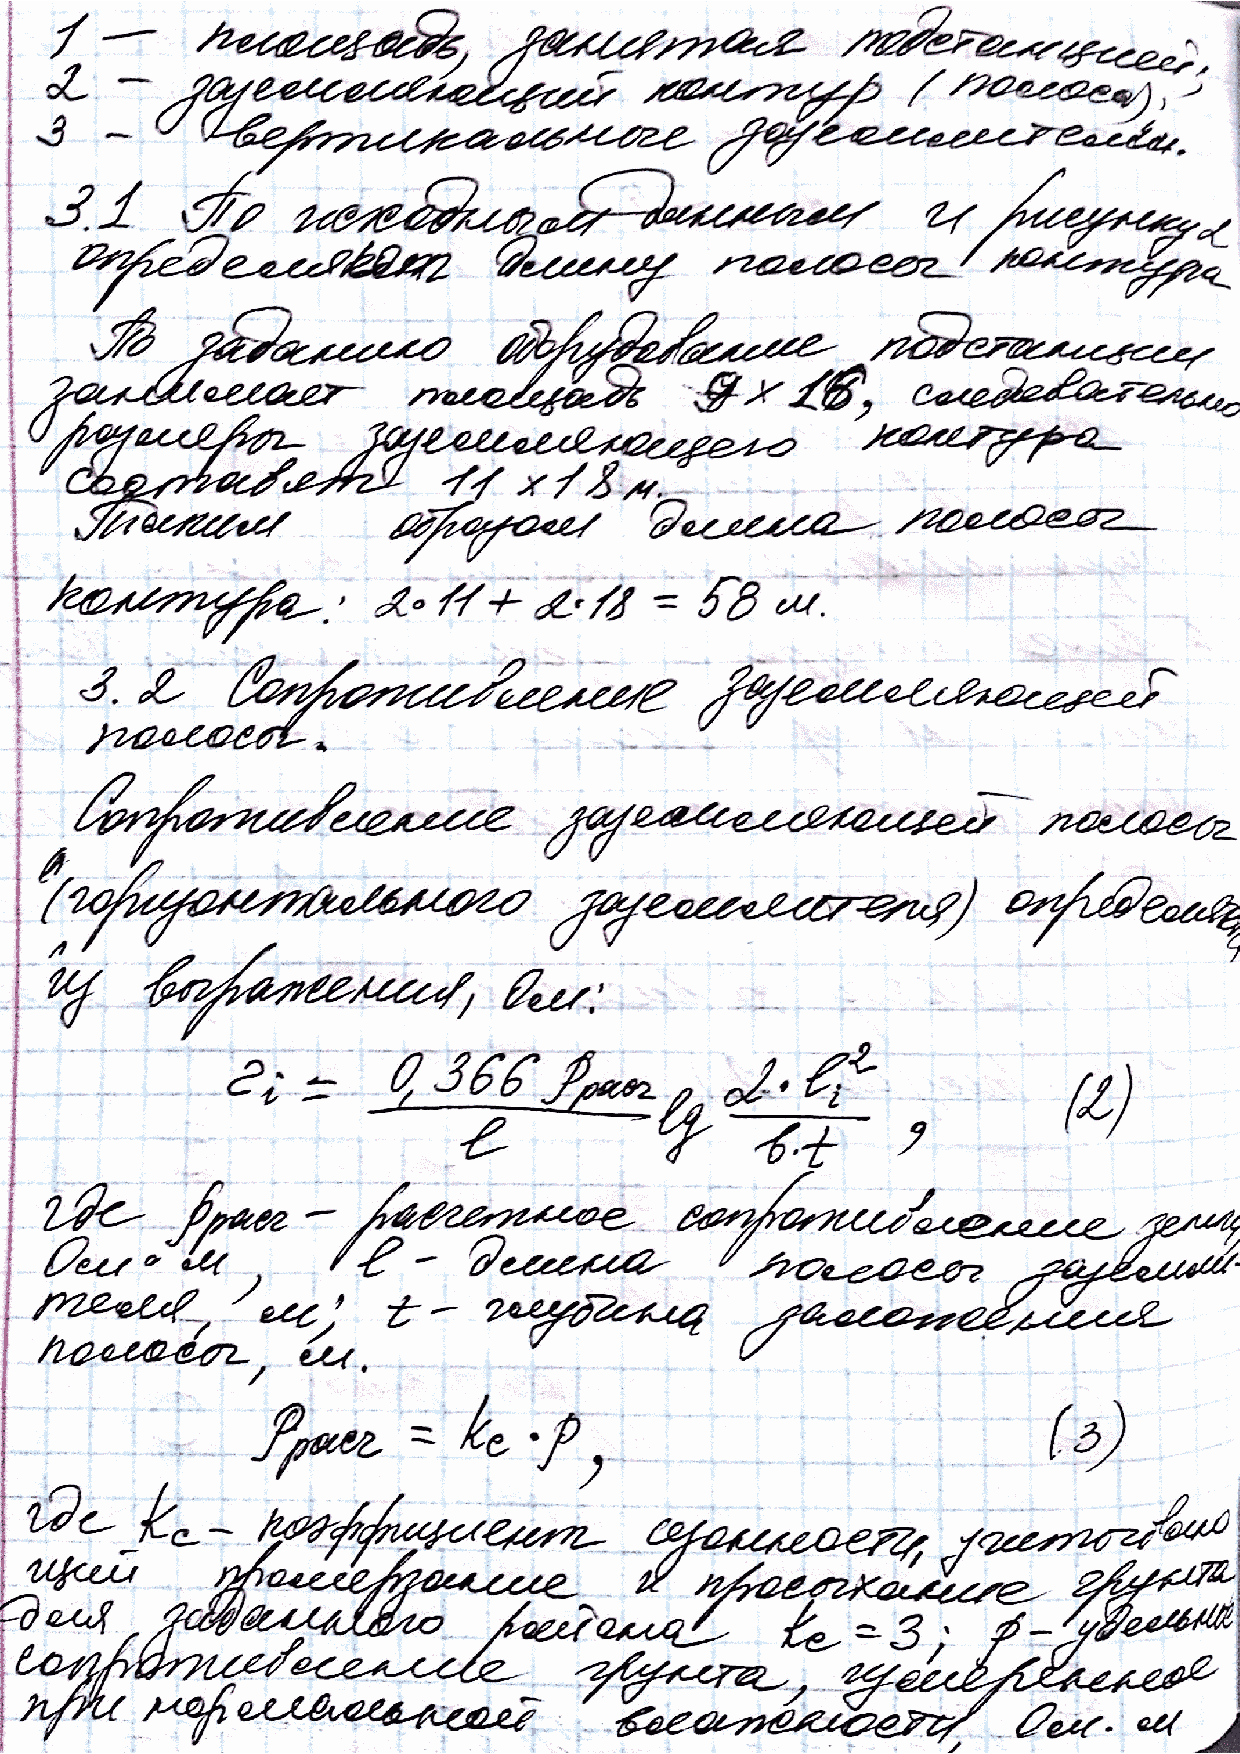 1 — площадь, занятая подстанцией;
2 — заземляющий контур (полоса);
3 — вертикальные заземлители.
3.1 По исходным данным и рисунку 2
определяют длину полосы контура
По заданию оборудование подстанции
занимает площадь 9 × 16, следовательно
размеры заземляющего контура
составят 11 × 18 м.
Таким образом длина полосы
контура: 2·11 + 2·18 = 58 м.
3.2 Сопротивление заземляющей
полосы.
Сопротивление заземляющей полосы
(горизонтального заземлителя) определяют
из выражения, Ом:
rᵢ = (0,366 ρрасч / l) lg (2·lᵢ² / b·t) , (2)
где ρрасч – расчетное сопротивление земли,
Ом·м, l – длина полосы заземли-
теля, м; t – глубина заложения
полосы, м.
ρрасч = kc · ρ, (3)
где kc – коэффициент сезонности, учитываю
щий промерзание и просыхание грунта
для заданного района kc = 3; ρ – удельное
сопротивление грунта, измеренное
при нормальной влажности, Ом·м